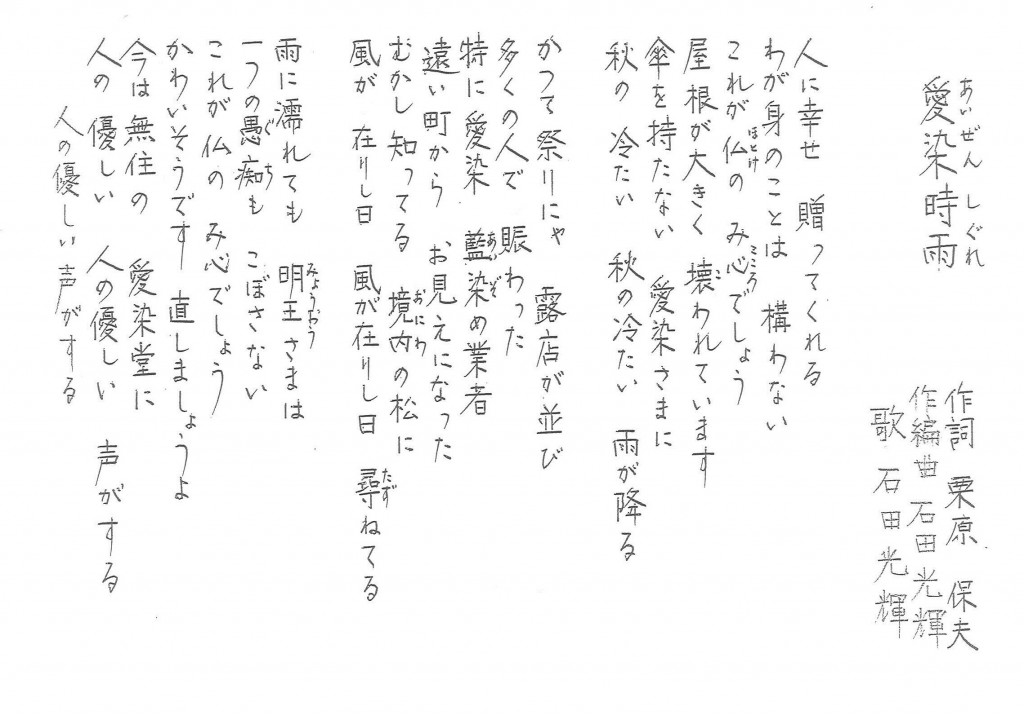 愛染時雨
あいぜん しぐれ
作詞 栗原 保夫
作編曲 石田光輝
歌 石田光輝
人に幸せ 贈ってくれる
わが身のことは 構わない
これが仏の み心でしょう
ほとけ こころ
屋根が大きく 壊われています
こ
傘を持たない 愛染さまに
秋の 冷たい 秋の冷たい 雨が降る
かつて祭りにゃ 露店が並び
多くの人で 賑わった
特に愛染 藍染め業者
あいぞ
遠い町から お見えになった
むかし知ってる 境内の松に
おにわ
風が 在りし日 風が在りし日 尋ねてる
たず
雨に濡れても 明王さまは
みょうおう
一つの愚痴も こぼさない
ぐち
これが仏の み心でしょう
かわいそうです 直しましょうよ
今は無住の 愛染堂に
人の優しい 人の優しい 声がする
人の優しい声がする